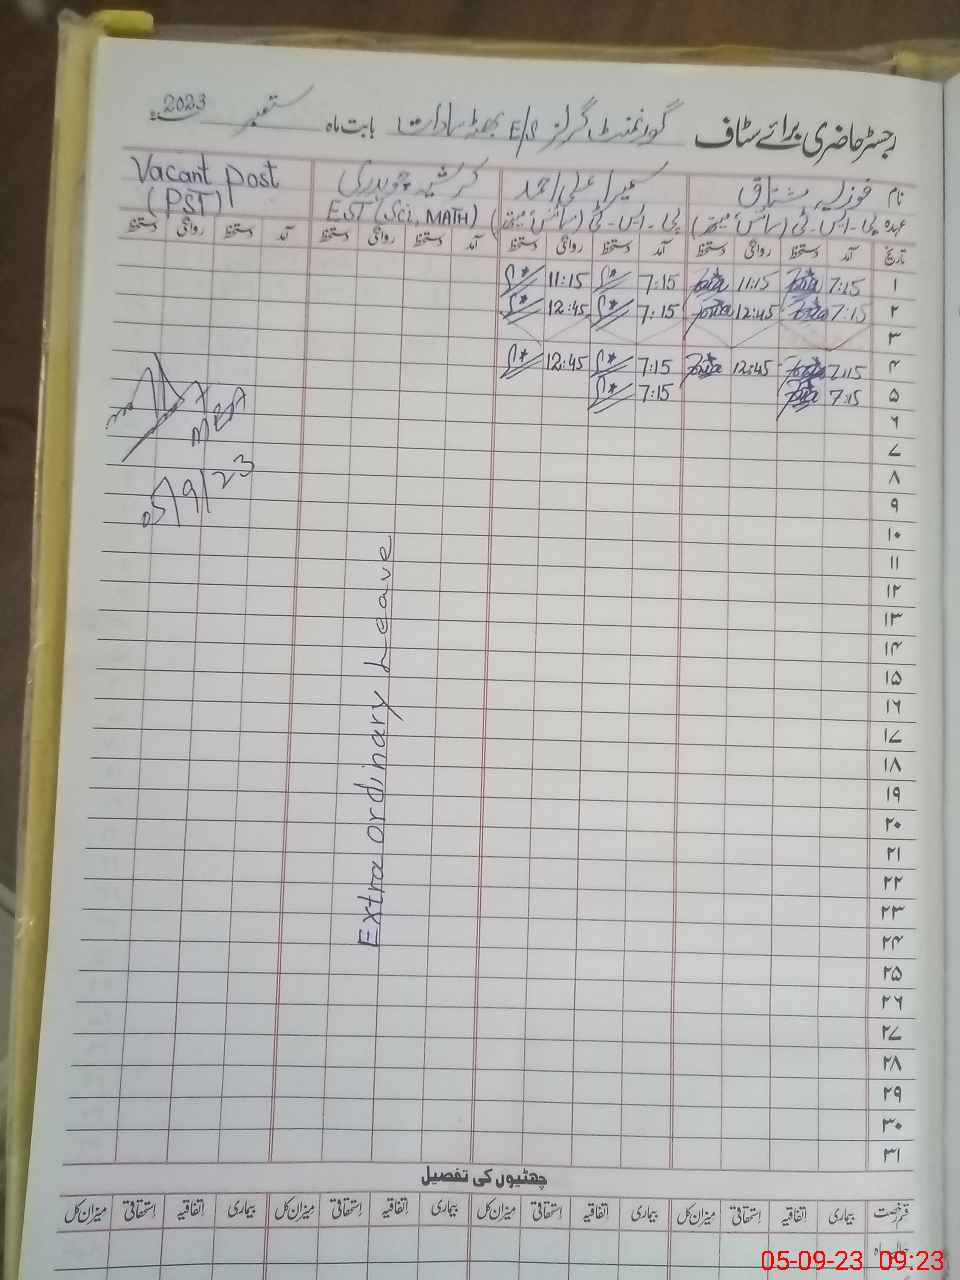 رجسٹر حاضری برائے سٹاف گورنمنٹ گرلز E/S بھٹہ سادات بابت ماہ ستمبر 2023ء
نام فوزیہ مشتاق سمیرا علی احمد چوہدری Vacant Post
عہدہ پی۔ایس۔ٹی (سائنس میتھ) پی۔ایس۔ٹی (سائنس میتھ) EST (Sci, MATH) (PST)
تاریخ آمد دستخط روانگی دستخط آمد دستخط روانگی دستخط آمد دستخط روانگی دستخط آمد دستخط روانگی دستخط
۱ 7:15 11:15 7:15 11:15
۲ 7:15 12:45 7:15 12:45
۳
۴ 7:15 12:45 7:15 12:45
۵ 7:15 7:15
۶
۷
۸
۹
۱۰
۱۱
۱۲
۱۳
۱۴
۱۵
۱۶
۱۷
۱۸
۱۹
۲۰
۲۱
۲۲
۲۳
۲۴
۲۵
۲۶
۲۷
۲۸
۲۹
۳۰
۳۱
MEA
05/9/23
Extra ordinary Leave
چھٹیوں کی تفصیل
قسم رخصت بیماری اتفاقیہ استحقاقی میزان کل بیماری اتفاقیہ استحقاقی میزان کل بیماری اتفاقیہ استحقاقی میزان کل بیماری اتفاقیہ استحقاقی میزان کل
05-09-23 09:23